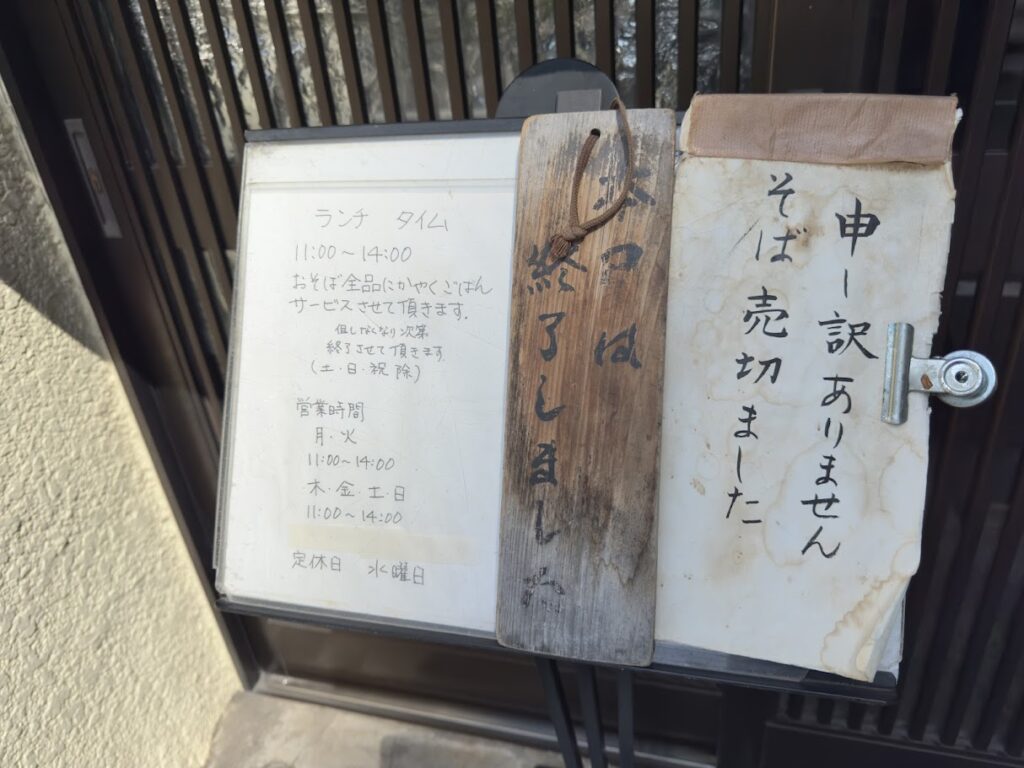 ランチ タイム
11:00～14:00
おそば全品にかやくごはん
サービスさせて頂きます.
但しなくなり次第
終了させて頂きます.
(土・日・祝除)
営業時間
月・火
11:00～14:00
木・金・土・日
11:00～14:00
定休日 水曜日
本日は
終了しました
申し訳ありません
そば売切ました